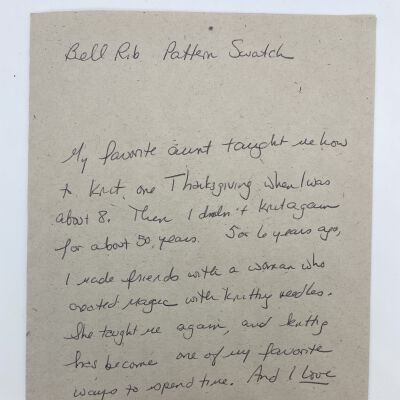 Bell Rib Pattern Swatch
My favorite aunt taught me how
to knit one Thanksgiving when I was
about 8. Then I didn't knit again
for about 50 years. 5 or 6 years ago,
I made friends with a woman who
created magic with knitting needles.
She taught me again, and knitting
has become one of my favorite
ways to spend time. And I love